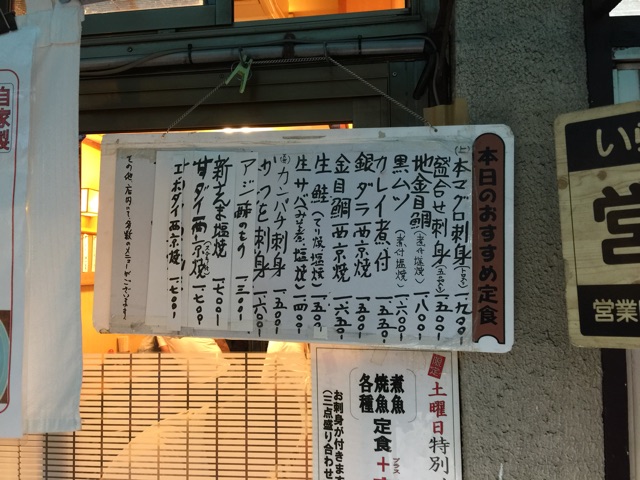 本日のおすすめ定食
(上)本マグロ刺身 一九〇〇
盛合せ刺身(五点) 一五〇〇
地金目鯛(煮付 塩焼) 一八〇〇
黒ムツ(煮付 塩焼) 一六〇〇
カレイ煮付 一五五〇
銀ダラ西京焼 一五〇〇
金目鯛西京焼 一六五〇
生鮭(てり焼 塩焼) 一五〇〇
生サバ(みそ煮 塩焼) 一四〇〇
カンパチ刺身 一五〇〇
かつを刺身 一六〇〇
アジ酢のもの 一三〇〇
新さんま塩焼 一七〇〇
甘ダイ西京焼 一七〇〇
エボダイ西京焼 一七〇〇
その他、店内にて多数のメニューがございます。
限定
土曜日特別
煮魚
焼魚定食+
各種
プラス
お刺身が付きます
(三点盛り合わせ
自家製
い
営
営業